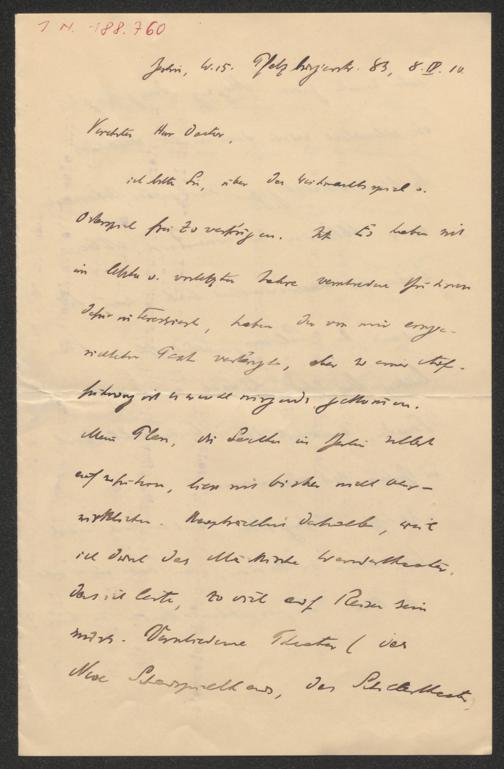 I N. 188.760
Berlin, W. 15. Pfalzburgerstr. 83, 8. IV. 10
Verehrter Herr Doctor,
ich bitte Sie, über das Weihnachtsspiel u.
Osterspiel frei zu verfügen. Es haben sich
im letzten u. vorletzten Jahre verschiedene Bühnen
dafür interessiert, haben den von mir einge-
richteten Text verlangt, aber zu einer Auf-
führung ist es wohl nirgends gekommen.
Mein Plan, die Sachen in Berlin selbst
aufzuführen, liess sich bisher nicht ver-
wirklichen. Hauptsächlich deshalb, weil
ich durch das Märkische Wandertheater,
das ich leite, zu viel auf Reisen sein
muss. Verschiedene Theater (das
Neue Schauspielhaus, das Schillertheater,